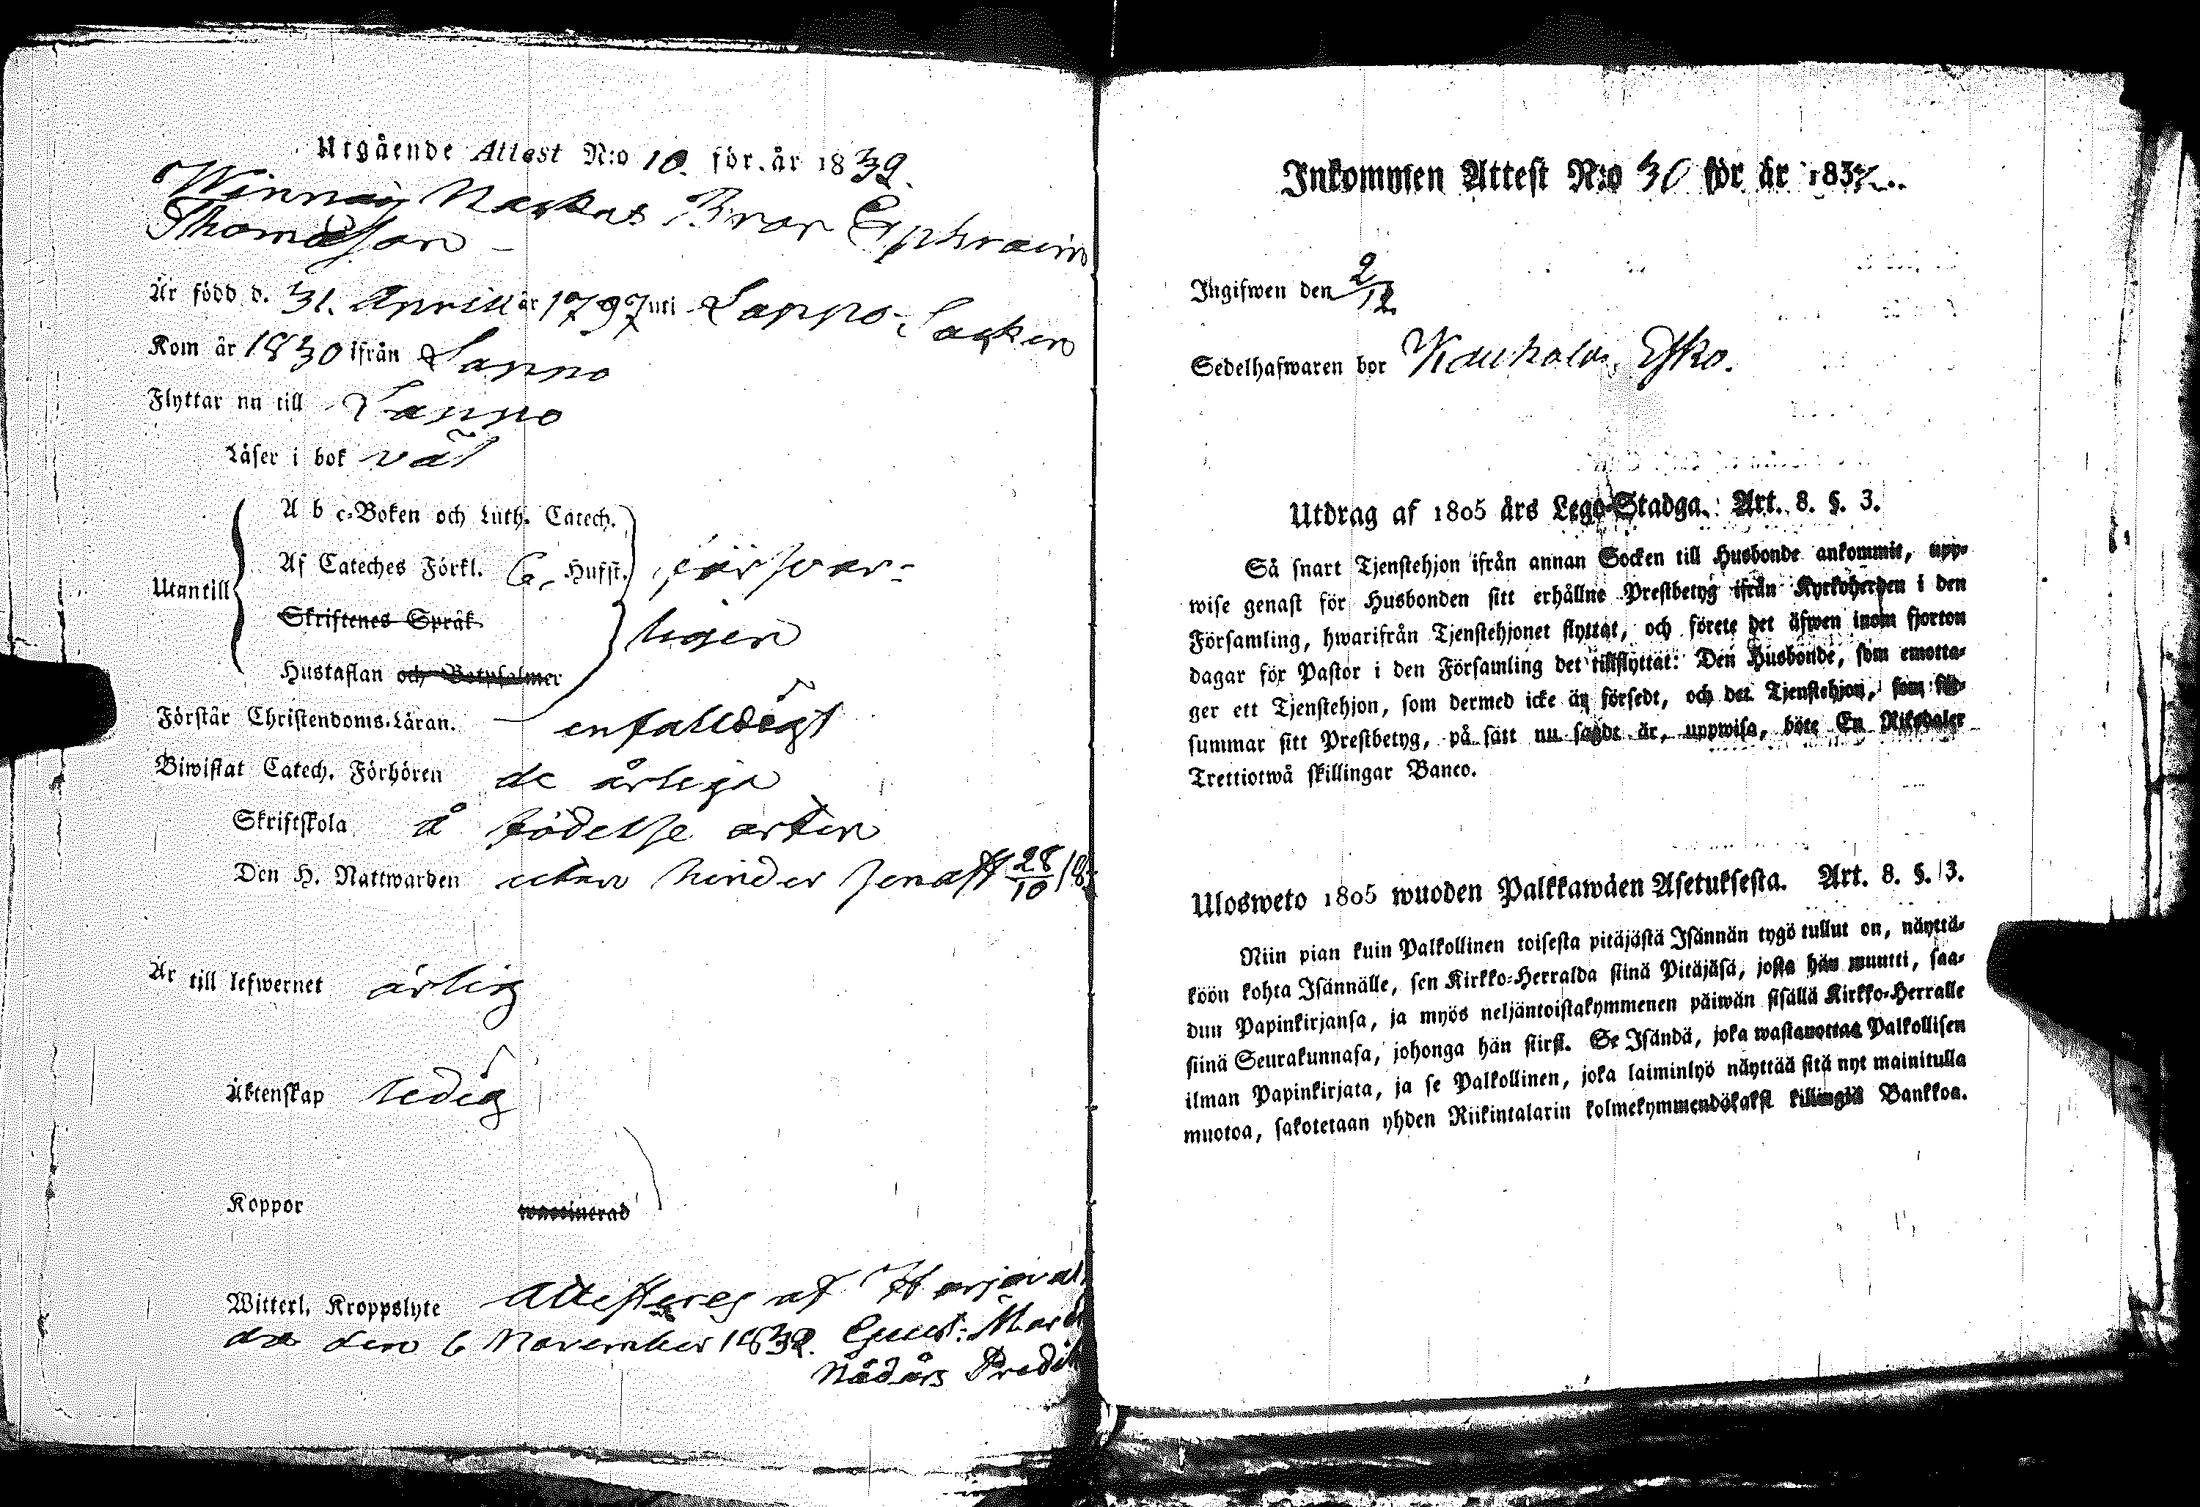 Utgående Attest N:o 10. för år 1832.
Winnais Markus Bror Ephraim
Thomasson
Är född d. 31. Aprill år 1797 uti Lappo Socken
Kom år 1830 ifrån Lappo
Flyttar nu till Lappo
Läser i bok väl
Utantill
A b c-Boken och Luth. Catech.
Af Cateches Förkl. 6, Hufst. försvar-
Skriftenes Språk ligen
Hustaflan och Botpsalmer
Förstår Christendoms-Läran. enfalldigt
Biwistat Catech. Förhören de årliga
Skriftskola å födelse orten
Den H. Nattwarden utan hinder senast 28/10 18
Är till lefwernet ärlig
Äktenskap ledig
Koppor waccinerad
Witterl. Kroppslyte Attesteres af Harjaval
da den 6 November 1832. Gust:
Nådårs Predik
Inkommen Attest N:o 30 för år 1832.
Ingifwen den 2/12
Sedelhafwaren bor
Utdrag af 1805 års Lego-Stadga. Art. 8. §. 3.
Så snart Tjenstehjon ifrån annan Socken till Husbonde ankommit, upp-
wise genast för Husbonden sitt erhållne Prestbetyg ifrån Kyrkoherden i den
Församling, hwarifrån Tjenstehjonet flyttat, och förete det äfwen inom fjorton
dagar för Pastor i den Församling det tillflyttat: Den Husbonde, som emotta-
ger ett Tjenstehjon, som dermed icke är försedt, och det Tjenstehjon, som för-
summar sitt Prestbetyg, på sätt nu sagdt är, uppwisa, böte En Riksdaler
Trettiotwå skillingar Banco.
Ulosweto 1805 wuoden Palkkawäen Asetuksesta. Art. 8. §. 3.
Niin pian kuin Palkollinen toisesta pitäjästä Isännän tygö tullut on, näyttä-
köön kohta Isännälle, sen Kirkko-Herralda siinä Pitäjäsä, josta hän muutti, saa-
dun Papinkirjansa, ja myös neljäntoistakymmenen päiwän sisällä Kirkko-Herralle
siinä Seurakunnasa, johonga hän siirsi. Se Isändä, joka wastanottaa Palkollisen
ilman Papinkirjata, ja se Palkollinen, joka laiminlyö näyttää sitä nyt mainitulla
muotoa, sakotetaan yhden Riikintalarin kolmekymmendökaksi killingiä Bankkoa.